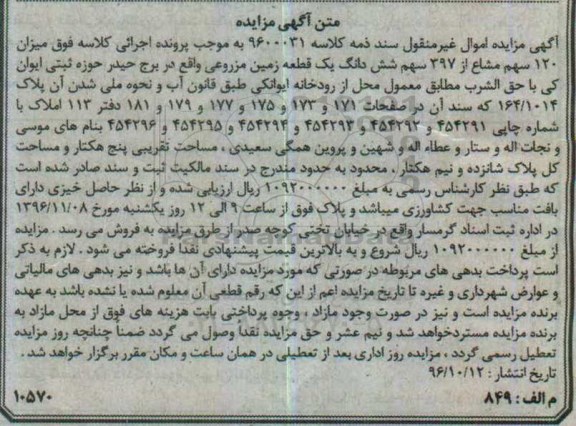 متن آگهی مزایده
آگهی مزایده اموال غیرمنقول سند ذمه کلاسه ۹۶۰۰۰۳۱ به موجب پرونده اجرائی کلاسه فوق میزان
۱۲۰ سهم مشاع از ۳۹۷ سهم شش دانگ یک قطعه زمین مزروعی واقع در برج حیدر حوزه ثبتی ایوان
کی با حق الشرب مطابق معمول محل از رودخانه ایوانکی طبق قانون آب و نحوه ملی شدن آن پلاک
۱۶۴/۱۰۱۴ که سند آن در صفحات ۱۷۱ و ۱۷۳ و ۱۷۵ و ۱۷۷ و ۱۷۹ و ۱۸۱ دفتر ۱۱۳ املاک با
شماره چاپی ۴۵۴۲۹۱ و ۴۵۴۲۹۲ و ۴۵۴۲۹۳ و ۴۵۴۲۹۴ و ۴۵۴۲۹۵ و ۴۵۴۲۹۶ بنام های موسی
و نجات اله و ستار و عطاء اله و شهین و پروین همگی سعیدی ، مساحت تقریبی پنج هکتار و مساحت
کل پلاک شانزده و نیم هکتار ، محدود به حدود مندرج در سند مالکیت ثبت و سند صادر شده است
که طبق نظر کارشناس رسمی به مبلغ ۱۰۹۲۰۰۰۰۰۰ ریال ارزیابی شده و از نظر حاصل خیزی دارای
بافت مناسب جهت کشاورزی میباشد و پلاک فوق از ساعت ۹ الی ۱۲ روز یکشنبه مورخ ۱۳۹۶/۱۱/۰۸
در اداره ثبت اسناد گرمسار واقع در خیابان تختی کوچه صدر از طرق مزایده به فروش می رسد . مزایده
از مبلغ ۱۰۹۲۰۰۰۰۰۰ ریال شروع و به بالاترین قیمت پیشنهادی نقدا فروخته می شود . لازم به ذکر
است پرداخت بدهی های مربوطه در صورتی که مورد مزایده دارای آن ها باشد و نیز بدهی های مالیاتی
و عوارض شهرداری و غیره تا تاریخ مزایده اعم از این که رقم قطعی آن معلوم شده یا نشده باشد به عهده
برنده مزایده است و نیز در صورت وجود مازاد ، وجوه پرداختی بابت هزینه های فوق از محل مازاد به
برنده مزایده مستردخواهد شد و نیم عشر و حق مزایده نقداً وصول می گردد ضمناً چنانچه روز مزایده
تعطیل رسمی گردد ، مزایده روز اداری بعد از تعطیلی در همان ساعت و مکان مقرر برگزار خواهد شد .
تاریخ انتشار : ۹۶/۱۰/۱۲
م الف : ۸۴۹
۱۰۵۷۰